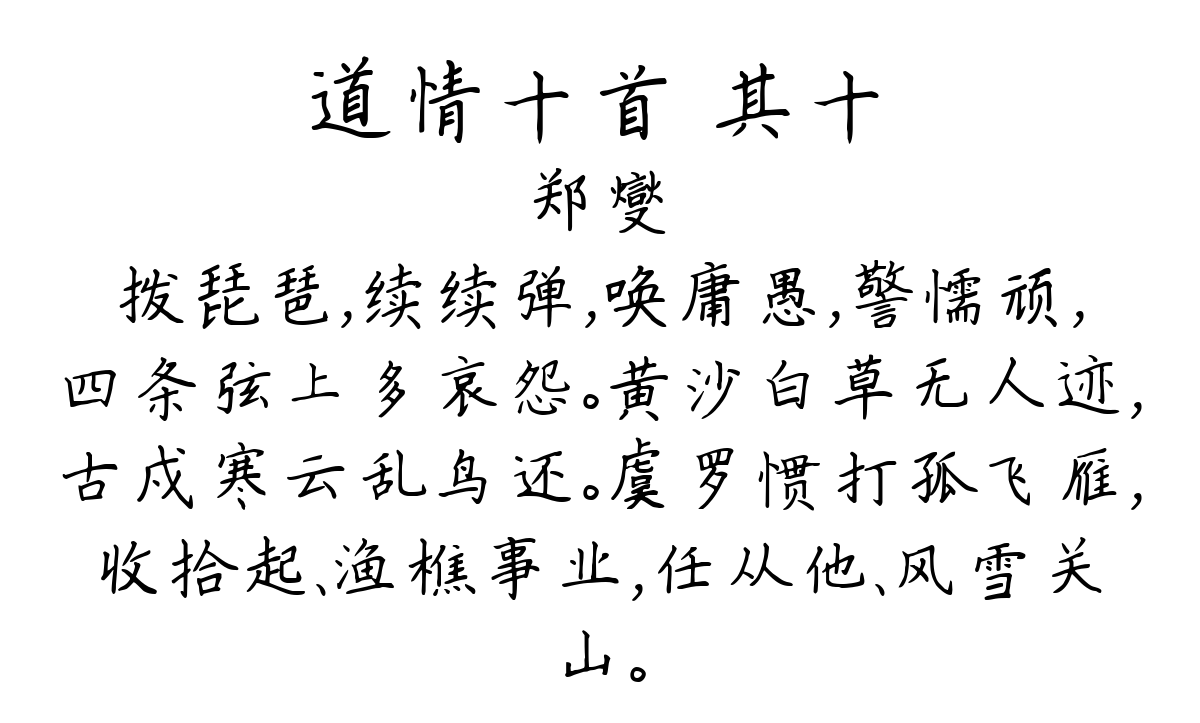 道情十首 其十
郑燮
拨琵琶,续续弹,唤庸愚,警懦顽,
四条弦上多哀怨。黄沙白草无人迹,
古戍寒云乱鸟还。虞罗惯打孤飞雁,
收拾起、渔樵事业,任从他、风雪关
山。